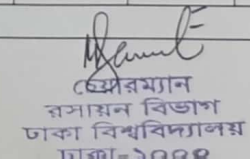 চেয়ারম্যান
রসায়ন বিভাগ
ঢাকা বিশ্ববিদ্যালয়
ঢাকা-১০০০